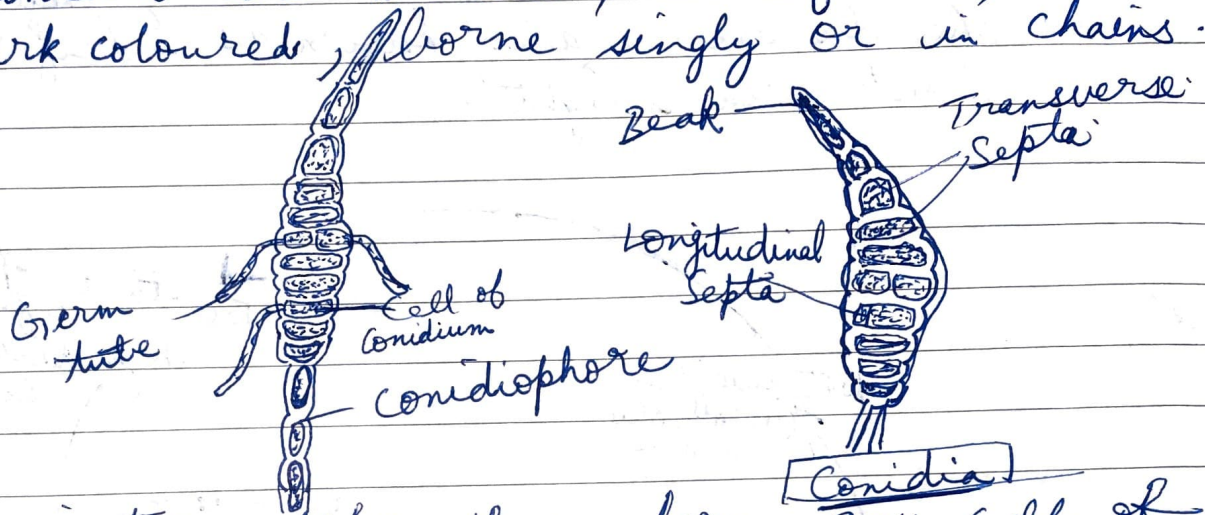 rk coloured, borne singly or in chains.
Beak
Transverse
Septa
Longitudinal
Septa
Germ
tube
Cell of
Conidium
Conidiophore
Conidia
of